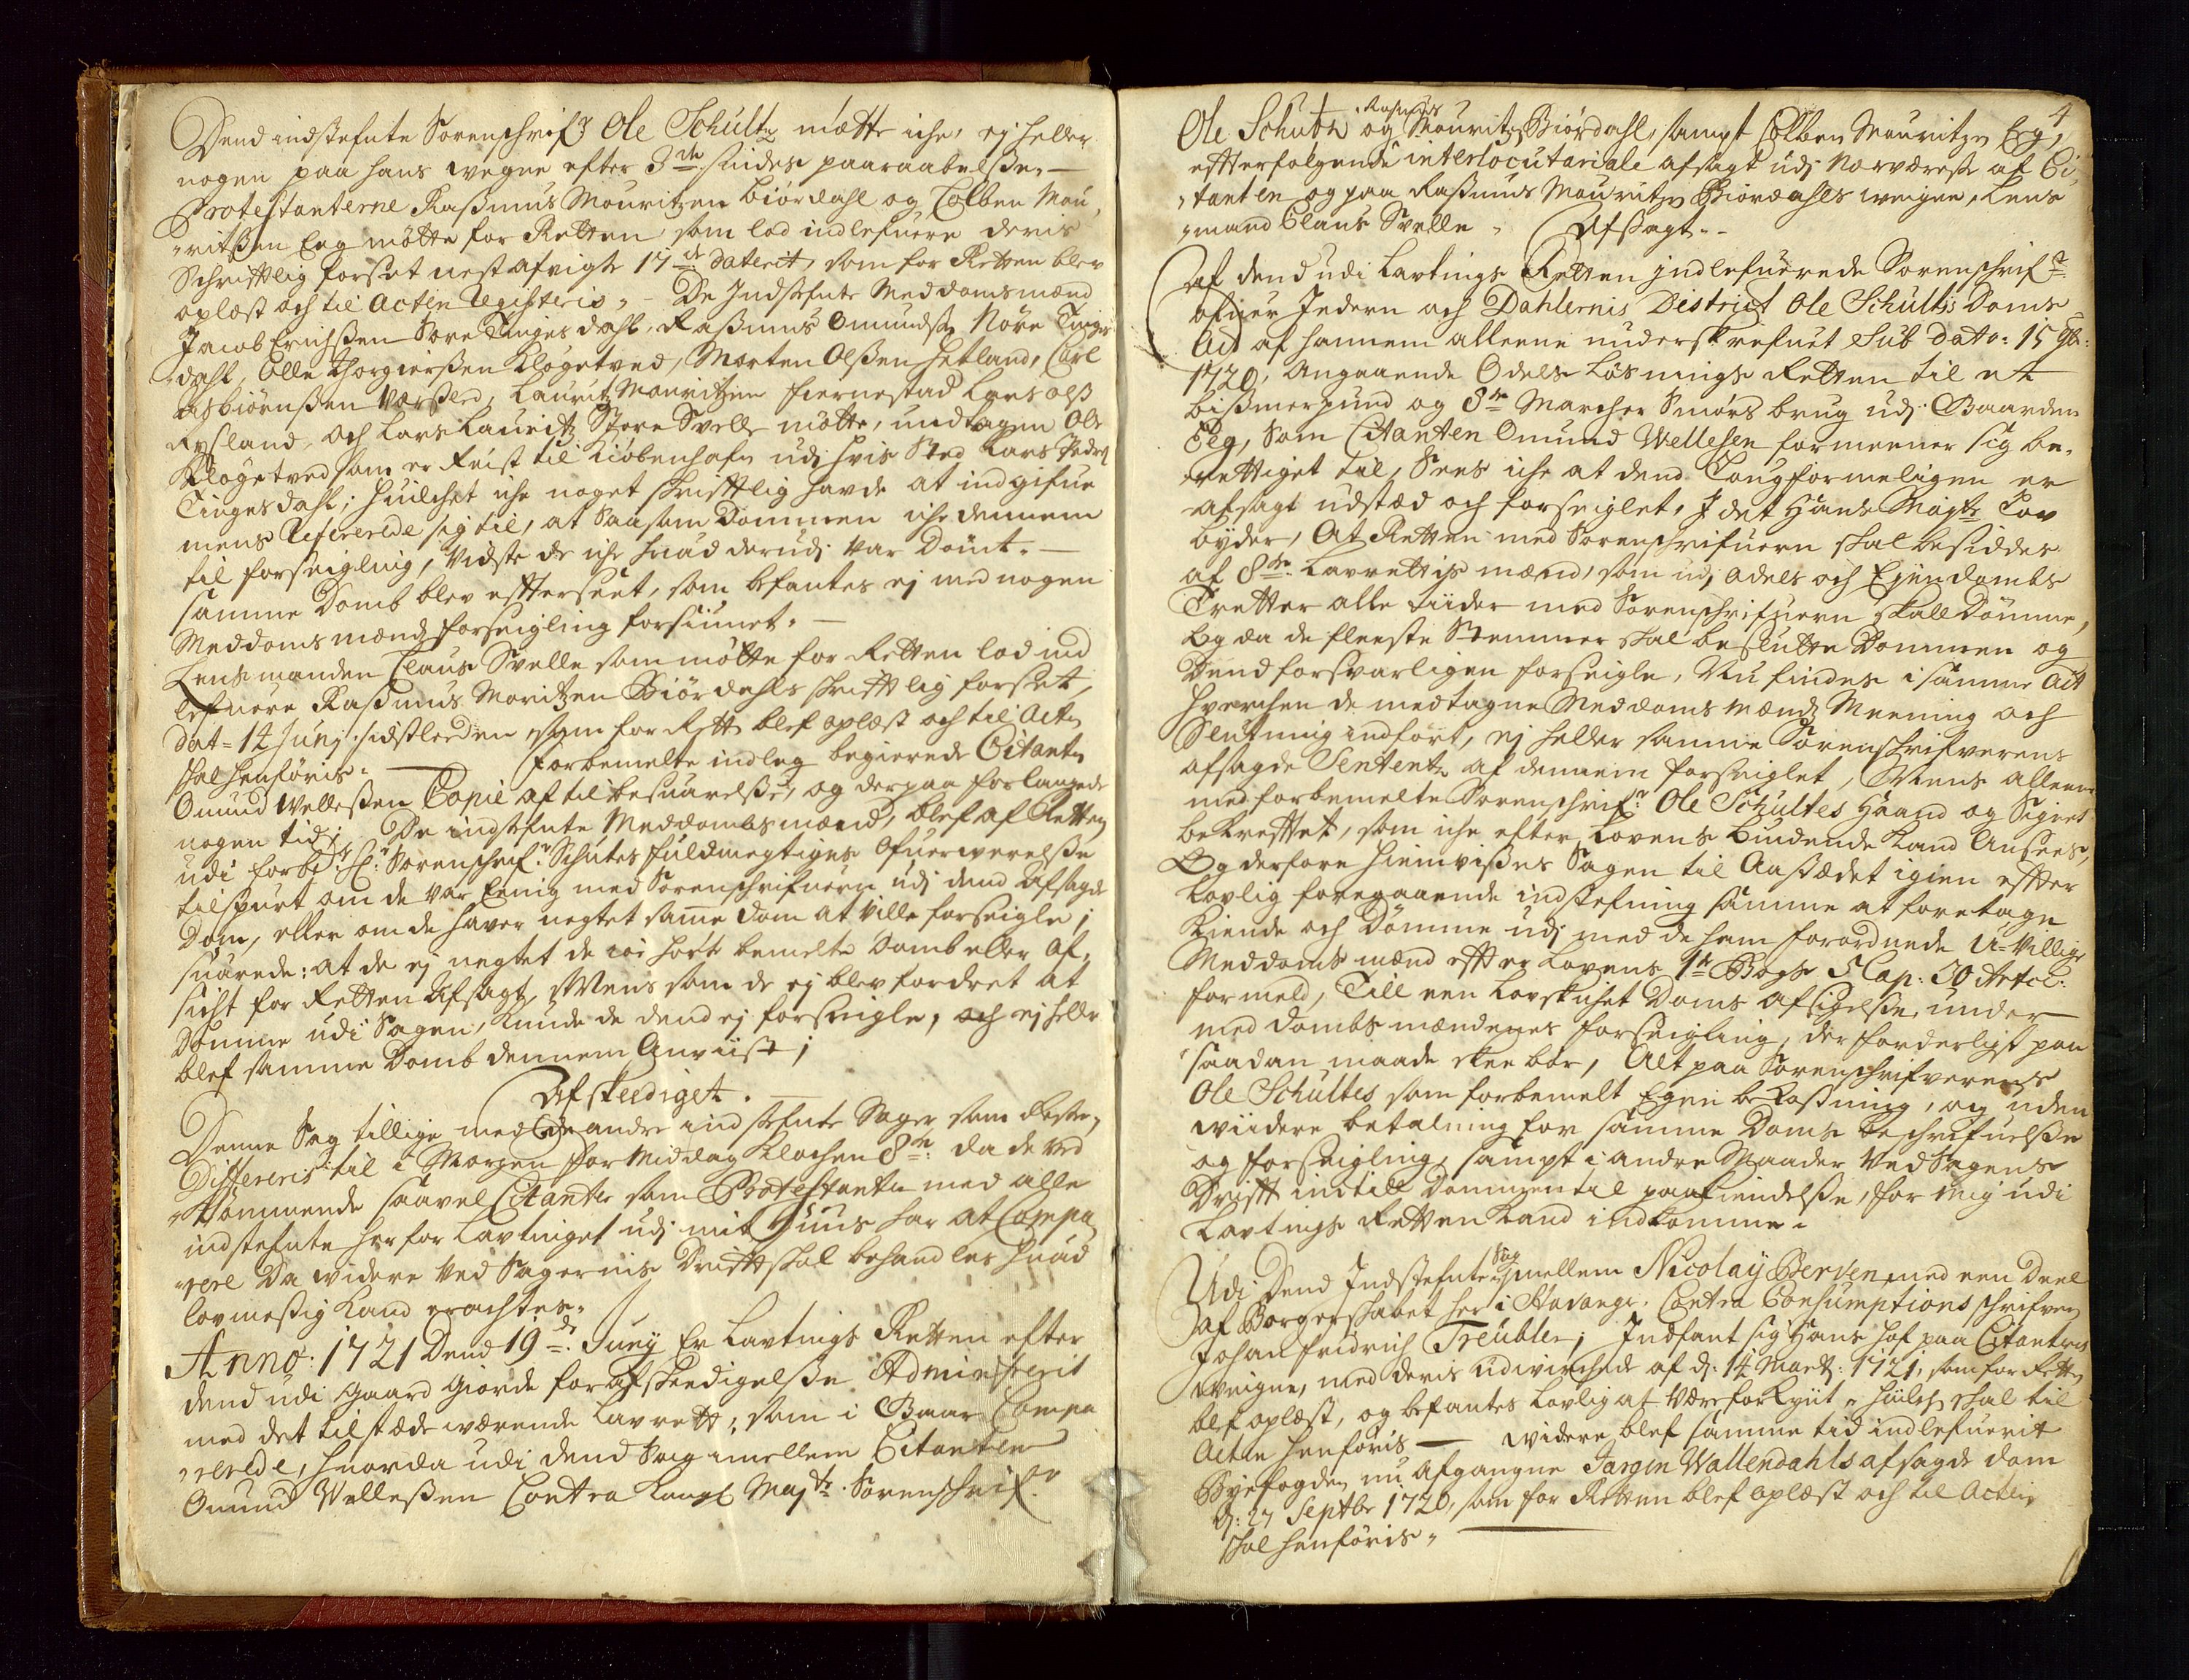 Dend indstefnte Sorenschrifr Ole Schultz møtte iche, ej heller
nogen paa hans wegne efter 3de sindes paaraabelße. —
Protestanterne Raßmus Mouritzen Biørdahl og Colben Mou,
„ritßen Eeg møtte for Retten som lod indlefuere deris
Schrifttlig forset nest afvigte 17de daterit, som for Retten blev
oplæst och til Acten Registeris, - De Indstefnte Meddomsmænd
Jacob Erichßen Søre Tinges dahl, Raßmus Omundsø Nøre Tinges
„dahl, Olle Thorgierßen Kløgetved, Morten Olßen Hetland, Carl
Asbiørnßen Værßled, Lauritz Mouritzen Fiernestad Lars Olß
Rysland, och Lars Lauritz Støre Svelle møtte, undtagen Ole
Kløgetved som er Reist til Kiøbenhafn udj hvis Sted Lars Pedrs
Tingesdahl; huilchet iche noget skrifttlig havde at indgifue
mens Refererede sig til, at Saasom Dommen iche dennem
til forseigling, Vidste de iche huad derudj var Dømt. —
samme Domb blev effterseet, som befantes ej med nogen
Meddoms mænds forseigling forsiunet. —
Lensmanden Claus Svelle som møtte for Retten lod ind
lefuere Raßmus Moritzen Biørdahls skrifftlig forset,
dat= 14 Junj sidstleeden som for Rett blef oplæst och til Acten
skal henføris. — forbemelte indleg begierede Citanten
Omund Welleßen Copie af til besuarelße, og derpaa forlangede
nogen tid; De indstefnte Meddombsmænd, blef af Retten
udi forbde Hr: Sorenschrifr Schultes fuldmegtiges Ofuerwerelße
tilspurt om de var Eenig med Sorenschrifueren udj dend Afsagde
Dom, eller om de hafver negtet samme dom at ville forseigle;
suarede: at de ej negtet de iche hørte bemelte Domb eller Af,
sicht for Retten Afsagt, Mens som de ej blev fordret at
Dømme udi Sagen, Kunde de dend ej forseigle, och ej heller
blef samme Domb dennem Anviist;
Afskeediget. —
Denne Sag tillige med de andre indstefnte Sager som Reste,
Differeris til i Morgen formiddag Klochen 8te: da de ved
„kommende saavel Citanter som Protestanter med alle
indstefnte her for Lavtinget udj mit Huus har at Compa
„rere Da widere ved Sagernis Drifft skal behandles huad
lovmeßig Kand erachtes.
Anno: 1721 Dend 19de Junij Er Lavtings Retten efter
dend udi gaard giorde for afskeedigelße Administrerit
med det tilstæde wærende Lavrett, som i Gaar Compa
„rerede, huorda udi dend Sag imellem Citanten
Omund Welleßen Contra Kongl Mayts Sorenschrifr
4
Ole Schultz og Raßmus Mouritz Biørdahl, sampt Colben Mouritzen Eeg,
effterfølgende interlocutariale afsagt udj Nærværelse af Ci,
„tanten og paa Raßmus Mouritzen Biørdahls weigne, Lens
„mand Claus Svelle, Afsagt. -
Af dend udi Lavtings Retten indlefuerede Sorenschrifr
ofuer Jedern och Dahlernis District Ole Schultis Doms
Act af hannem alleene underskrefuet Sub dato: 15 9br:
1720, Angaaende Odels Løsnings Retten til et
bißmerpund og 8te Marcher Smørs brug udj Gaarden
Eeg, Som Citanten Omund Wellesen formeener sig be,
rettiget til, Sees iche at dend Lougformeligen er
afsagt udstæd och forseiglet, I det Hans Mayts Lov
byder, At Retten med Sorenschrifueren skal besiddes
af 8te Lavrettis mænd, som udj Odels och Ejendombs
Tretter alle tiider med Sorenschrifueren skall Dømme,
Og da de fleeste Stemmer skal beslutte Dommen og
Dend forsvarligen forseigle, Nu findes i samme Act
hverchen de medtagne Meddoms mænds Meening och
Slutning indført, ej heller samme Sorenschrifverens
afsagde Sententz af dennem forseiglet, Mens alleene
med forbemelte Sorenschrifr: Ole Schultes Haand og Signet
bekrefftet, som iche efter Lovens bindende Kand Ansees,
Og derfore hiemvißes Sagen til Aastædet igien effter
Lovlig foregaaende indstefning samme at foretage
Kiende och Dømme udj med de ham forordnede U-Villige
Meddoms mænd effter Lovens 1te Bogs 5 Cap: 20 Artcl:
formeld, Till een Lovskichet Doms afsigelße, under
med dombs mændenes forseigling, der forderligst paa
saadan maade skee bør, Alt paa Sorenschrifverens
Ole Schultes som forbemelt Egen bekostning, og uden
wiidere betalning for samme Doms beschrifuelße
og forseigling, sampt i andre Maader ved Sagens
Drifft indtill Dommen til paakiendelße, for mig udi
Lavtings Retten Kand indkomme.
Udi Dend Indstefnte Sag imellem Nicolaij Bersen med een Deel
af Borgerskabet her i Stavanger Contra Consumptions schrifver
Johan Fridrich Treubler; Indfant sig Hans Hof paa Citanternis
weigne, med deris udvirchede af d: 14 Martj: 1721, som for Retten
blef oplæst, og befantes lovlig at være forkynt, huilch skal til
Acten henføris — widere blef samme tid indlefuerit
Byefogden nu afgangne Jørgen Wallendahls afsagde dom
d: 27 Septbr 1720, som for Retten blef oplæst och til Acten
skal henføris. —